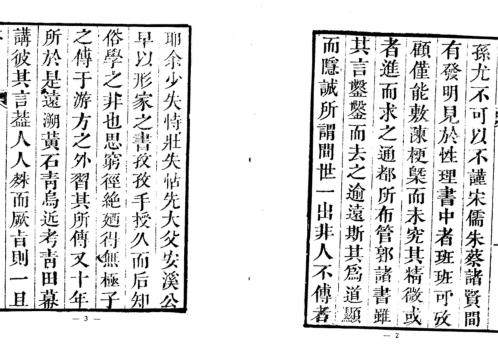 孫尤不可以不謹宋儒朱蔡諸賢間
有發明見於性理書中者班班可攷
顧僅能敷陳梗槩而未究其精微或
者進而求之通都所布管郭諸書雖
其言鑿鑿而去之逾遠斯其爲道顯
而隱誠所謂間世一出非人不傳者
— 2
耶余少失恃壯失怙先大父安溪公
早以形家之書孜孜手授久而后知
俗學之非也思窮徑絶廼得無極子
之傳于游方之外習其所傳又十年
所於是遠溯黃石靑烏近考靑田幕
講彼其言葢人人殊而厥旨則一旦
— 3 —